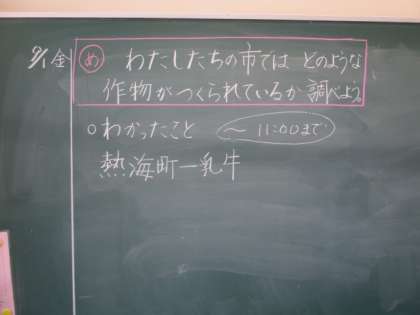 9/1 金
め わたしたちの市では どのような
作物がつくられているか 調べよう。
○わかったこと 〜11:00まで
熱海町ー乳牛